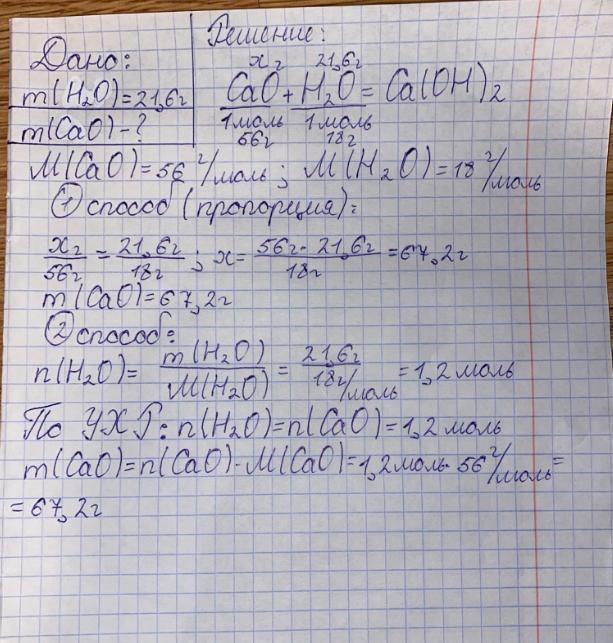 Дано:
m(H₂O)=21,6г
m(CaO)-?
Решение:
xг 21,6г
CaO+H₂O=Ca(OH)₂
1моль 1моль
56г 18г
M(CaO)=56 г/моль; M(H₂O)=18 г/моль
① способ (пропорция):
xг/56г = 21,6г/18г; x= 56г·21,6г/18г =67,2г
m(CaO)=67,2г
② способ:
n(H₂O)= m(H₂O)/M(H₂O) = 21,6г/18г/моль =1,2моль
По УХР: n(H₂O)=n(CaO)=1,2моль
m(CaO)=n(CaO)·M(CaO)=1,2моль·56 г/моль=
=67,2г